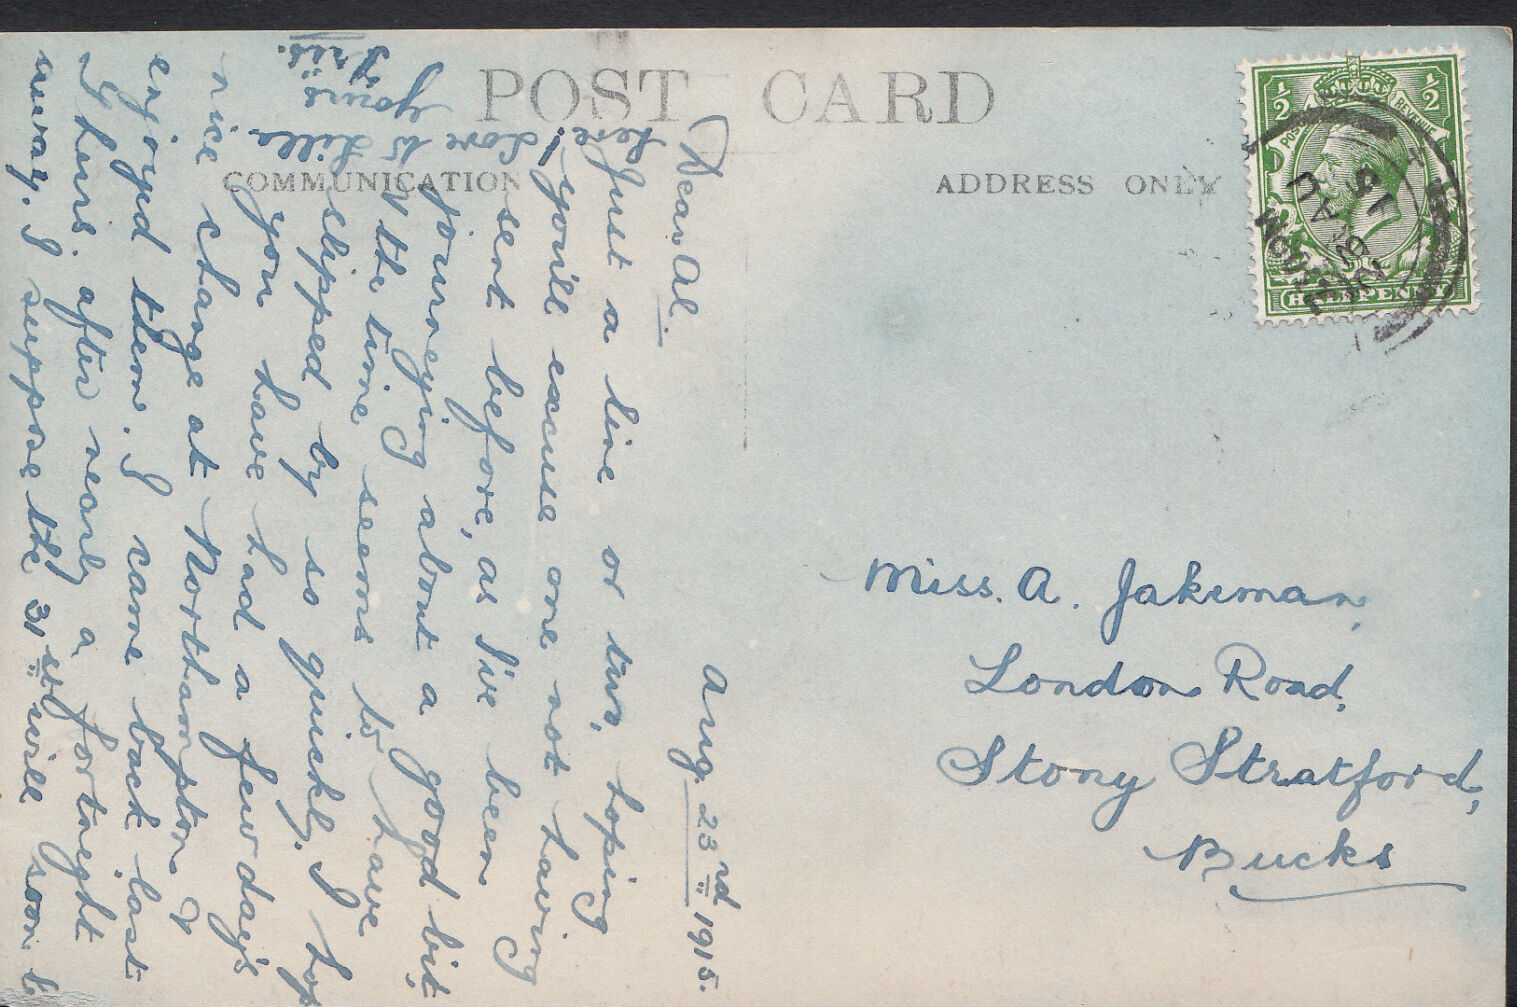 POST CARD
COMMUNICATION
ADDRESS ONLY
Aug. 23rd 1915.
Dear Al.
Just a line or two, hoping
you'll excuse one not having
sent before, as I've been
journeying about a good bit,
& the time seems to have
slipped by so quickly. I hope
you have had a few day's
nice change at Northampton &
enjoyed them. I came back last
Thurs. after nearly a fortnight
away. I suppose the 31st will soon be
here!
Love to Lilla
yours
Miss. A. Jakeman,
London Road,
Stony Stratford,
Bucks
1/2 1/2
POSTAGE REVENUE
HALFPENNY
AU
15